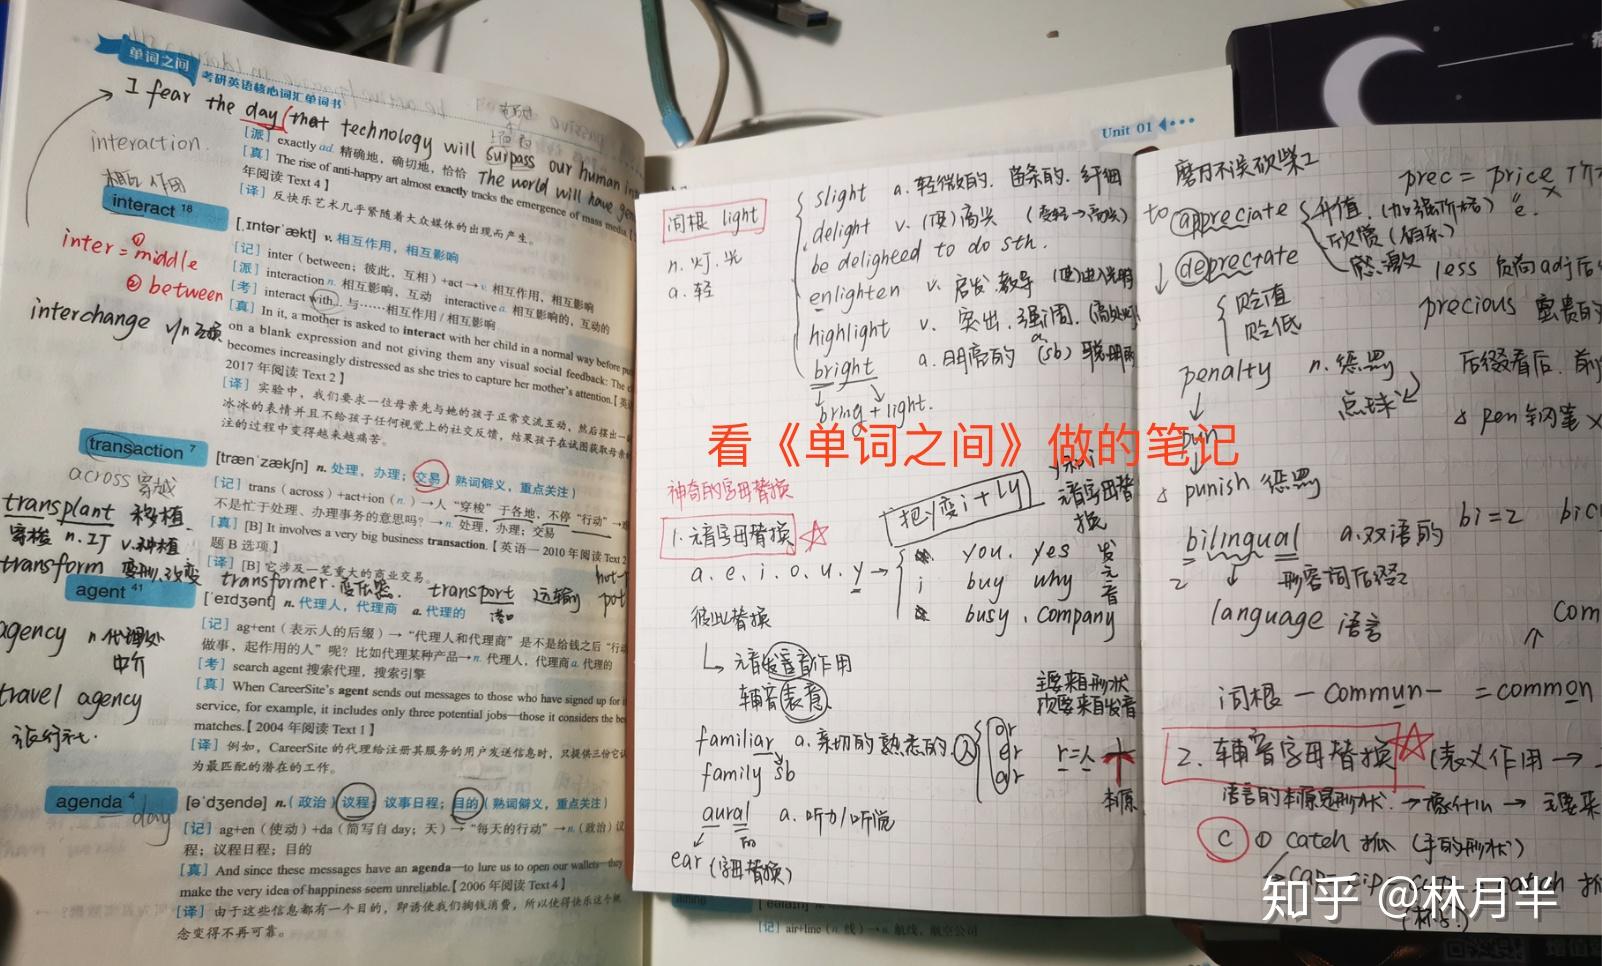 单词之间
考研英语核心词汇单词书
I fear the day that technology will surpass our human
The world will have
interaction.
相互作用
[派] exactly ad. 精确地，确切地，恰恰
[真] The rise of anti-happy art almost exactly tracks the emergence of mass media.
年阅读 Text 4】
[译] 反快乐艺术几乎紧随着大众媒体的出现而产生。
interact 18
[ˌɪntərˈækt] v. 相互作用，相互影响
inter = ① middle
② between
interchange v/n 互换
[记] inter（between；彼此，互相）+act→v. 相互作用，相互影响
[派] interaction n. 相互影响，互动 interactive a. 相互影响的，互动的
[考] interact with 与……相互作用 / 相互影响
[真] In it, a mother is asked to interact with her child in a normal way before
on a blank expression and not giving them any visual social feedback: The
becomes increasingly distressed as she tries to capture her mother's attention.【英
2017 年阅读 Text 2】
[译] 实验中，我们要求一位母亲先与她的孩子正常交流互动，然后摆出一
冰冰的表情并且不给孩子任何视觉上的社交反馈，结果孩子在试图获取母亲
注的过程中变得越来越痛苦。
transaction 7
[trænˈzækʃn] n. 处理，办理；交易（熟词僻义，重点关注）
across 穿越
transplant 移植
穿梭 n.工厂 v.种植
transform 变形.改变
transformer.变压器. transport 运输
港口
[记] trans（across）+act+ion（n.）→人“穿梭”于各地，不停“行动”→
不是忙于处理、办理事务的意思吗？→n. 处理，办理；交易
[真] [B] It involves a very big business transaction.【英语一 2010 年阅读 Text 2
题 B 选项】
[译] [B] 它涉及一笔重大的商业交易。
agent 41
[ˈeɪdʒənt] n. 代理人，代理商 a. 代理的
agency n 代理处
中介
travel agency
旅行社.
[记] ag+ent（表示人的后缀）→“代理人和代理商”是不是给钱之后“行动
做事，起作用的人”呢？比如代理某种产品→n. 代理人，代理商 a. 代理的
[考] search agent 搜索代理，搜索引擎
[真] When CareerSite's agent sends out messages to those who have signed up for
service, for example, it includes only three potential jobs—those it considers the
matches.【2004 年阅读 Text 1】
[译] 例如，CareerSite 的代理给注册其服务的用户发送信息时，只提供三份它
为最匹配的潜在的工作。
agenda 4
day
[əˈdʒendə] n.（政治）议程；议事日程；目的（熟词僻义，重点关注）
[记] ag+en（使动）+da（简写自 day；天）→“每天的行动”→n.（政治）议
程；议程日程；目的
[真] And since these messages have an agenda—to lure us to open our wallets—they
make the very idea of happiness seem unreliable.【2006 年阅读 Text 4】
[译] 由于这些信息都有一个目的，即诱使我们掏钱消费，所以使得快乐这个概
念变得不再可靠。
Unit 01
词根 light
n. 灯.光
a. 轻
slight a. 轻微的. 苗条的. 纤细
delight v. (使)高兴
be delighted to do sth.
enlighten v. 启发.教导
highlight v. 突出.强调.
bright a. 明亮的 (sb) 聪明
bring + light.
看《单词之间》做的笔记
神奇的字母替换
把y变i+ly
元音字母替换
1.元音字母替换
a. e. i. o. u. y →
you. yes
i buy why
busy. company
发元音
彼此替换
元音发音作用
辅音表意
主要来自形状
次要来自发音
familiar a. 亲切的.熟悉的.
family sb
人
or
er
ar
r=人
本原
aural a. 听力/听觉
ear (字母替换)
磨刀不误砍柴工
prec = price
to appreciate
升值.(加强价格)
欣赏
感激
depreciate
贬值
贬低
precious 宝贵的
penalty n. 惩罚
点球
后缀看后.
pen 钢笔 ×
pun
punish 惩罚
bilingual a.双语的
bi=2
2
形容词后缀
language 语言
com
词根 -commun- = common
2.辅音字母替换 (表义作用 →
c ① catch 抓 (手的形状)
[记] air+line（n. 线）→n. 航线，航空公司
知乎 @林月半